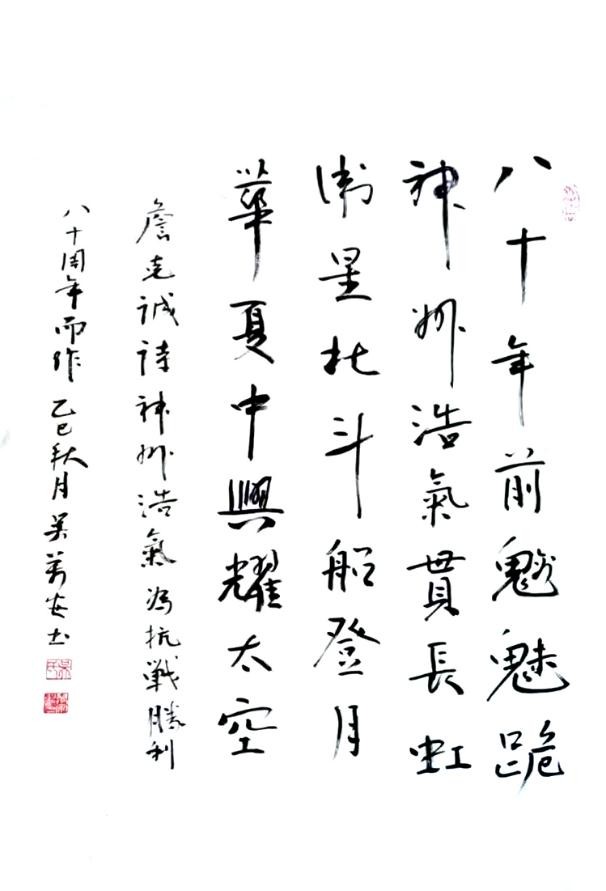 八十年前魑魅跪
神州浩氣貫長虹
衛星北斗船登月
華夏中興耀太空
詹克誠詩神州浩氣為抗戰勝利
八十周年而作乙巳秋月吳萬安书